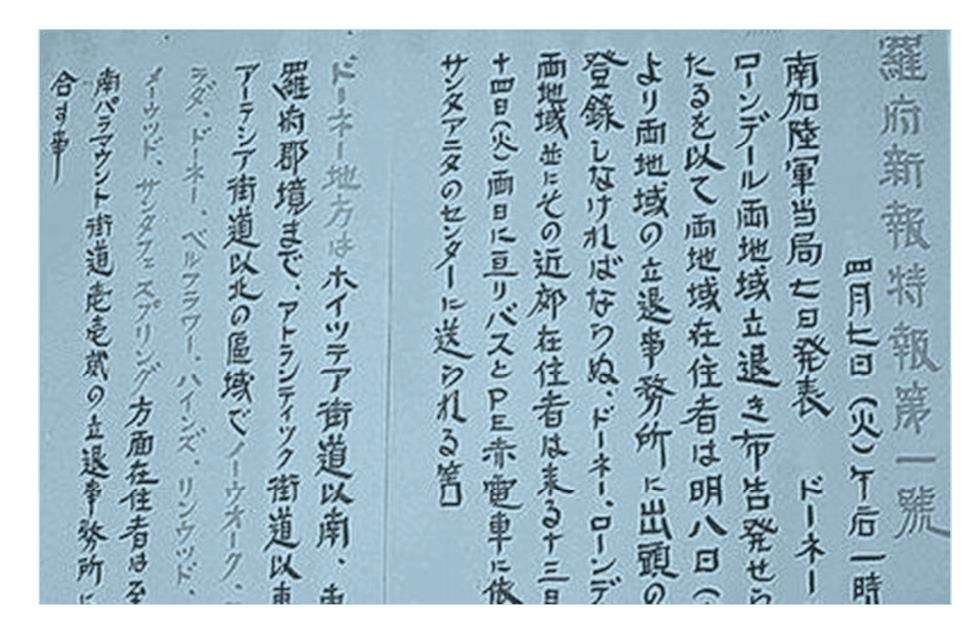 羅府新報特報第一號
四月七日(火)午后一時
南加陸軍当局七日発表　ドーネー
ローンデール両地域立退き布告発せら
たるを以て両地域在住者は明八日(
より両地域の立退事務所に出頭の
登録しなければならぬ、ドーネー、ローンデ
両地域並にその近郊在住者は来る十三日
十四日(火)両日に亘りバスとPE赤電車に依
サンタアニタのセンターに送られる筈
ドーネー地方はホイツテア街道以南、
羅府郡境まで、アトランティック街道以東
アーテシア街道以北の區域でノーウオーク、
ラダ、ドーネー、ベルフラワー、ハインズ、リンウッド、
メーウッド、サンタフェスプリング方面在住者は至
南パラマウント街道壱壱貮の立退事務所に
合す事